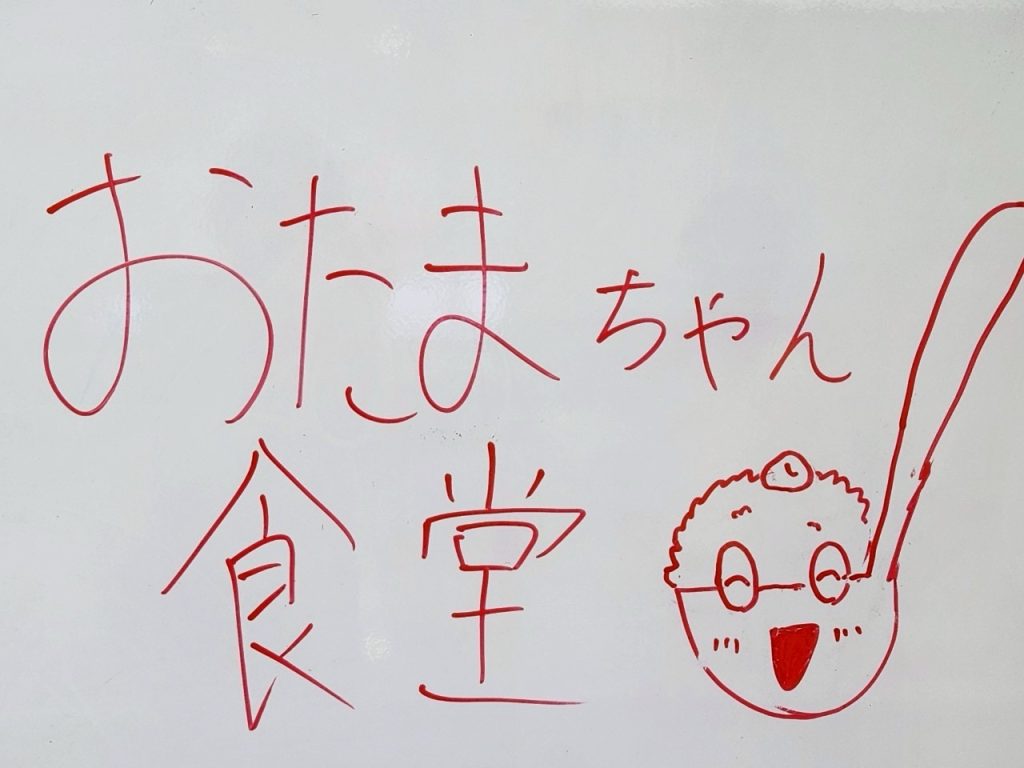 おたまちゃん
食堂